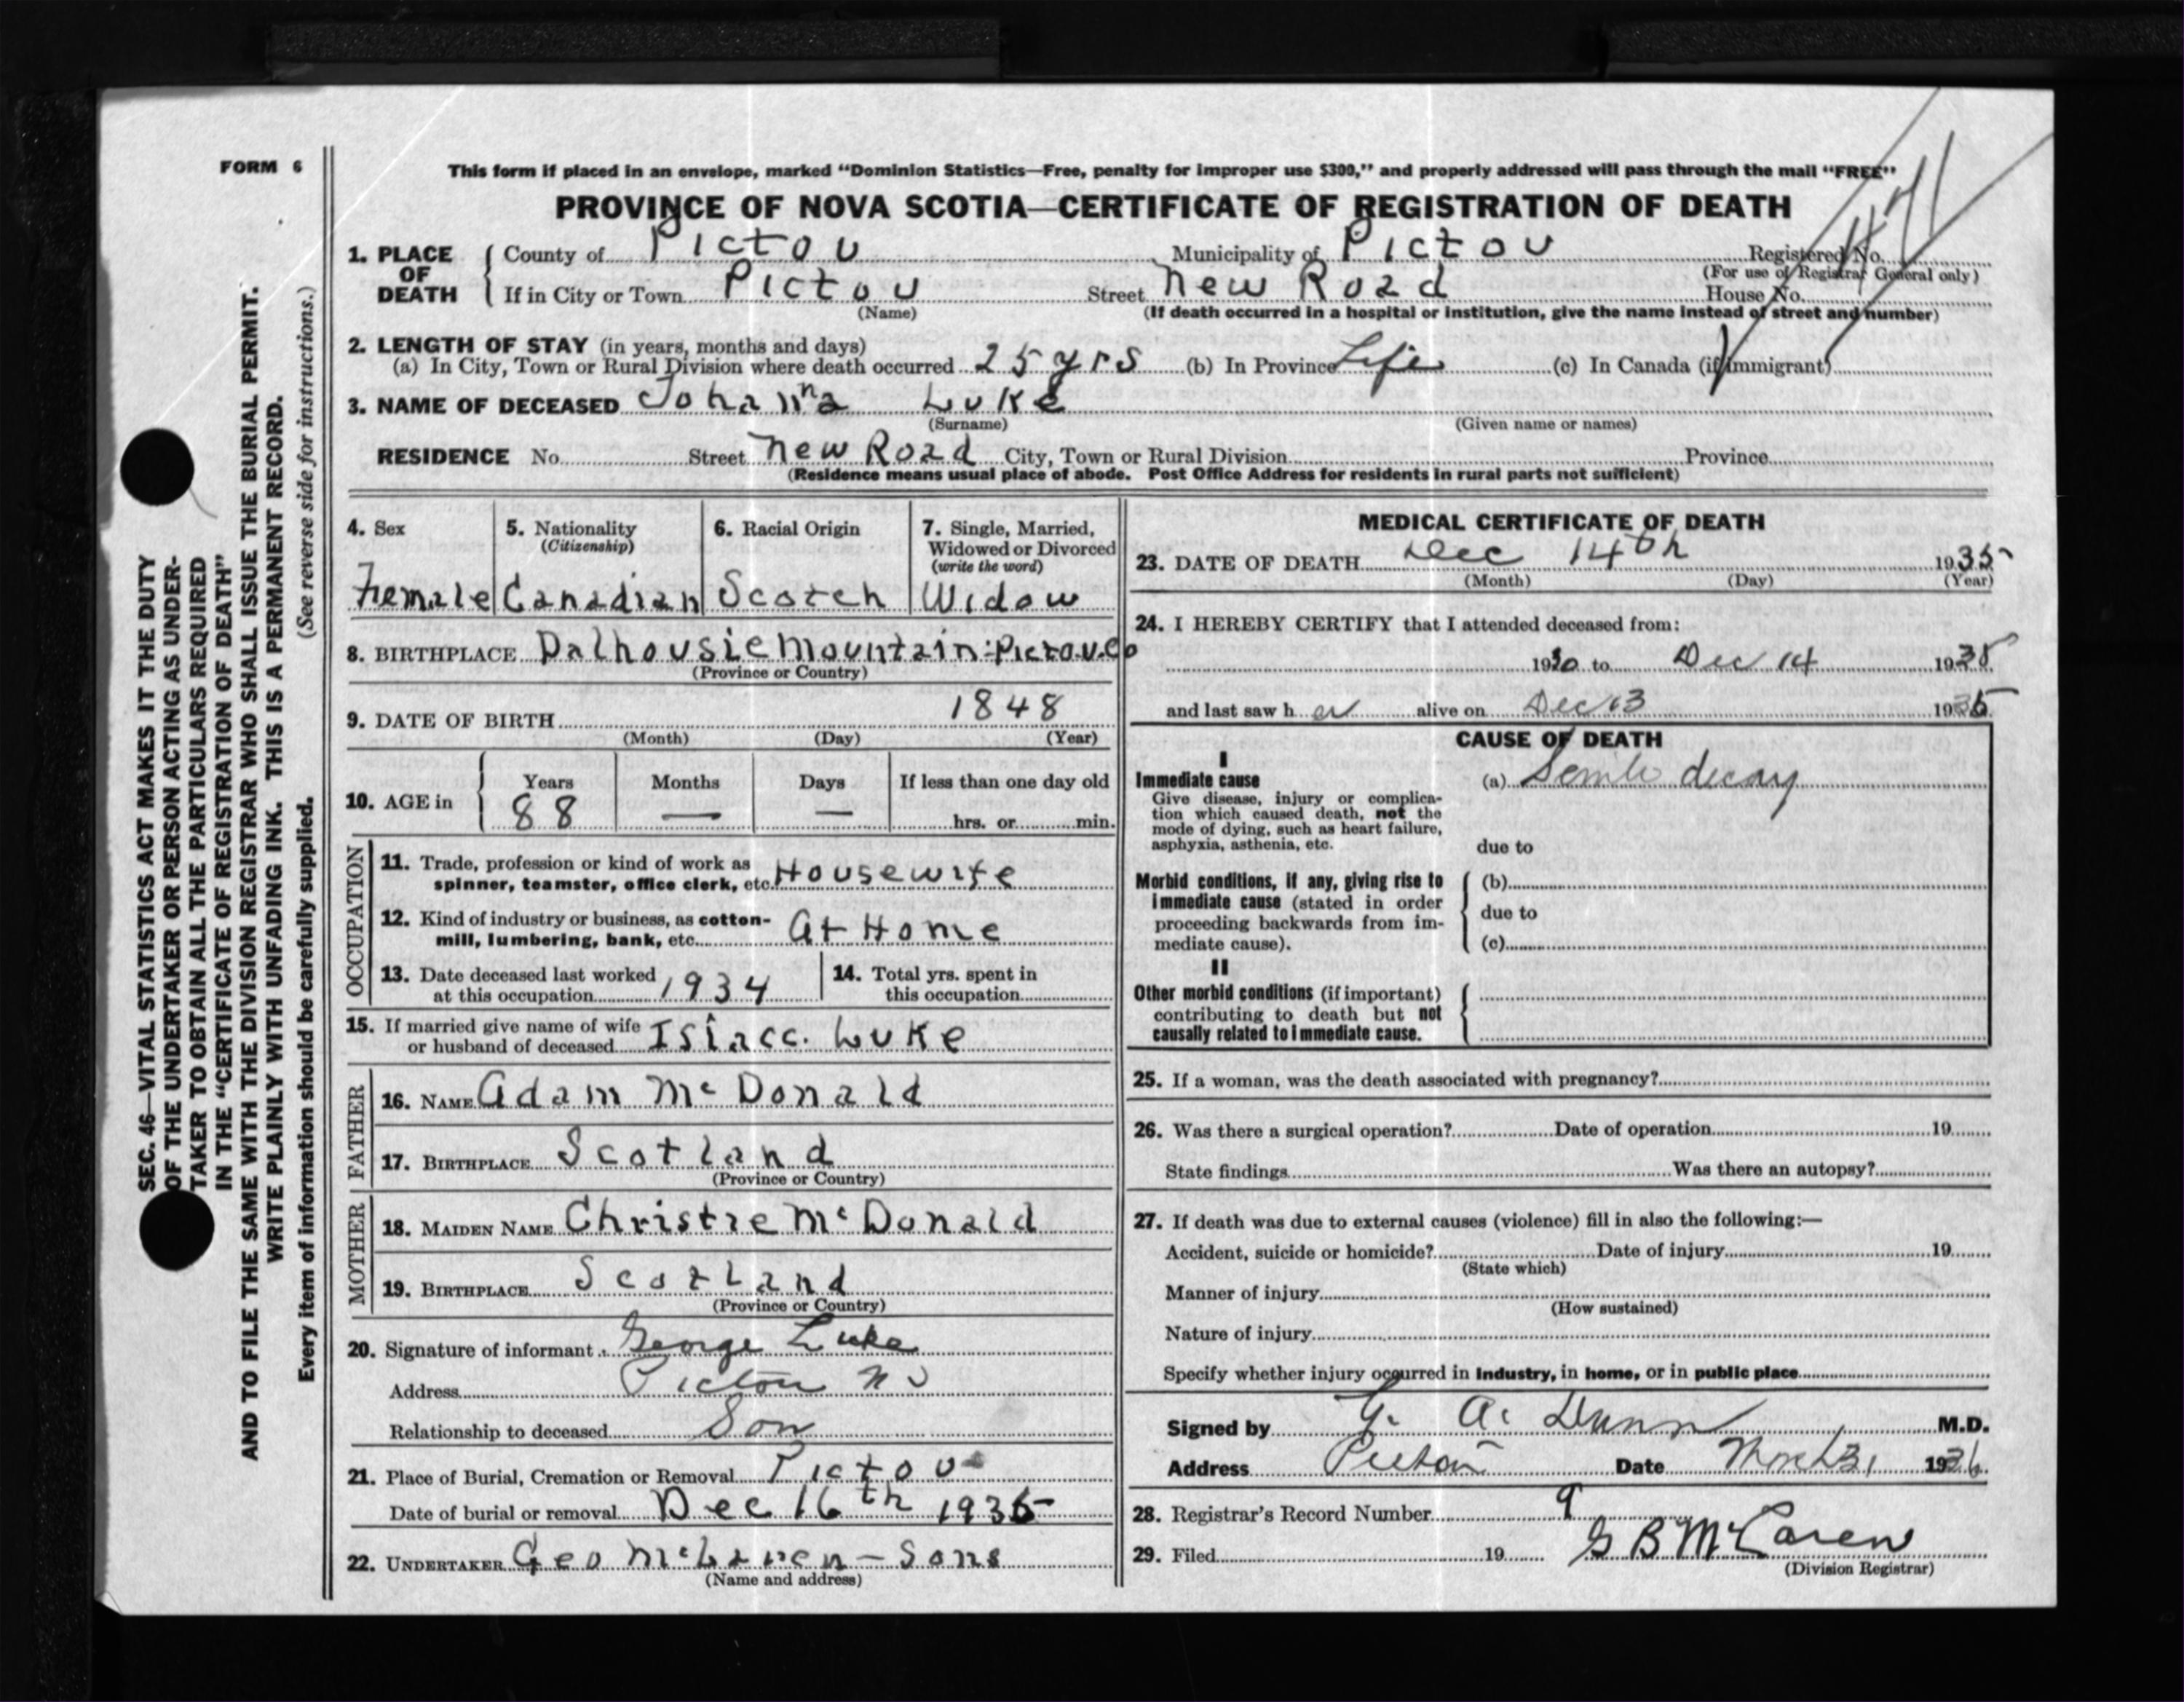 FORM 6
This form if placed in an envelope, marked "Dominion Statistics—Free, penalty for improper use $300," and properly addressed will pass through the mail "FREE"
PROVINCE OF NOVA SCOTIA—CERTIFICATE OF REGISTRATION OF DEATH
1. PLACE OF DEATH
County of Pictou Municipality of Pictou Registered No.
(For use of Registrar General only)
If in City or Town Pictou Street New Road House No.
(Name) (If death occurred in a hospital or institution, give the name instead of street and number)
2. LENGTH OF STAY (in years, months and days)
(a) In City, Town or Rural Division where death occurred 25 yrs (b) In Province Life (c) In Canada (if immigrant)
3. NAME OF DECEASED Johanna Luke
(Surname) (Given name or names)
RESIDENCE No. Street New Road City, Town or Rural Division Province
(Residence means usual place of abode. Post Office Address for residents in rural parts not sufficient)
4. Sex
Female
5. Nationality
(Citizenship)
Canadian
6. Racial Origin
Scotch
7. Single, Married,
Widowed or Divorced
(write the word)
Widow
8. BIRTHPLACE Dalhousie Mountain: Pictou. Co
(Province or Country)
9. DATE OF BIRTH 1848
(Month) (Day) (Year)
10. AGE in
Years Months Days If less than one day old
88 — — hrs. or min.
OCCUPATION
11. Trade, profession or kind of work as
spinner, teamster, office clerk, etc. Housewife
12. Kind of industry or business, as cotton-
mill, lumbering, bank, etc. At Home
13. Date deceased last worked
at this occupation 1934
14. Total yrs. spent in
this occupation
15. If married give name of wife
or husband of deceased Isiacc. Luke
FATHER
16. NAME Adam McDonald
17. BIRTHPLACE Scotland
(Province or Country)
MOTHER
18. MAIDEN NAME Christie McDonald
19. BIRTHPLACE Scotland
(Province or Country)
20. Signature of informant George Luke
Address Pictou N S
Relationship to deceased Son
21. Place of Burial, Cremation or Removal Pictou
Date of burial or removal Dec 16th 1935
22. UNDERTAKER Geo McLaren – Sons
(Name and address)
MEDICAL CERTIFICATE OF DEATH
23. DATE OF DEATH Dec 14th 1935
(Month) (Day) (Year)
24. I HEREBY CERTIFY that I attended deceased from:
19 to Dec 14 1935
and last saw her alive on Dec 13 1935
CAUSE OF DEATH
I
Immediate cause (a) Senile decay
Give disease, injury or complica-
tion which caused death, not the
mode of dying, such as heart failure,
asphyxia, asthenia, etc. due to
Morbid conditions, if any, giving rise to (b)
immediate cause (stated in order due to
proceeding backwards from im-
mediate cause). (c)
II
Other morbid conditions (if important)
contributing to death but not
causally related to immediate cause.
25. If a woman, was the death associated with pregnancy?
26. Was there a surgical operation? Date of operation 19
State findings Was there an autopsy?
27. If death was due to external causes (violence) fill in also the following:—
Accident, suicide or homicide? Date of injury 19
(State which)
Manner of injury
(How sustained)
Nature of injury
Specify whether injury occurred in industry, in home, or in public place
Signed by G. A. Dunn M.D.
Address Pictou Date March 31 1936
28. Registrar's Record Number 9
29. Filed 19 G B McLaren
(Division Registrar)
SEC. 46—VITAL STATISTICS ACT MAKES IT THE DUTY
OF THE UNDERTAKER OR PERSON ACTING AS UNDER-
TAKER TO OBTAIN ALL THE PARTICULARS REQUIRED
IN THE "CERTIFICATE OF REGISTRATION OF DEATH"
AND TO FILE THE SAME WITH THE DIVISION REGISTRAR WHO SHALL ISSUE THE BURIAL PERMIT.
WRITE PLAINLY WITH UNFADING INK. THIS IS A PERMANENT RECORD.
Every item of information should be carefully supplied. (See reverse side for instructions.)